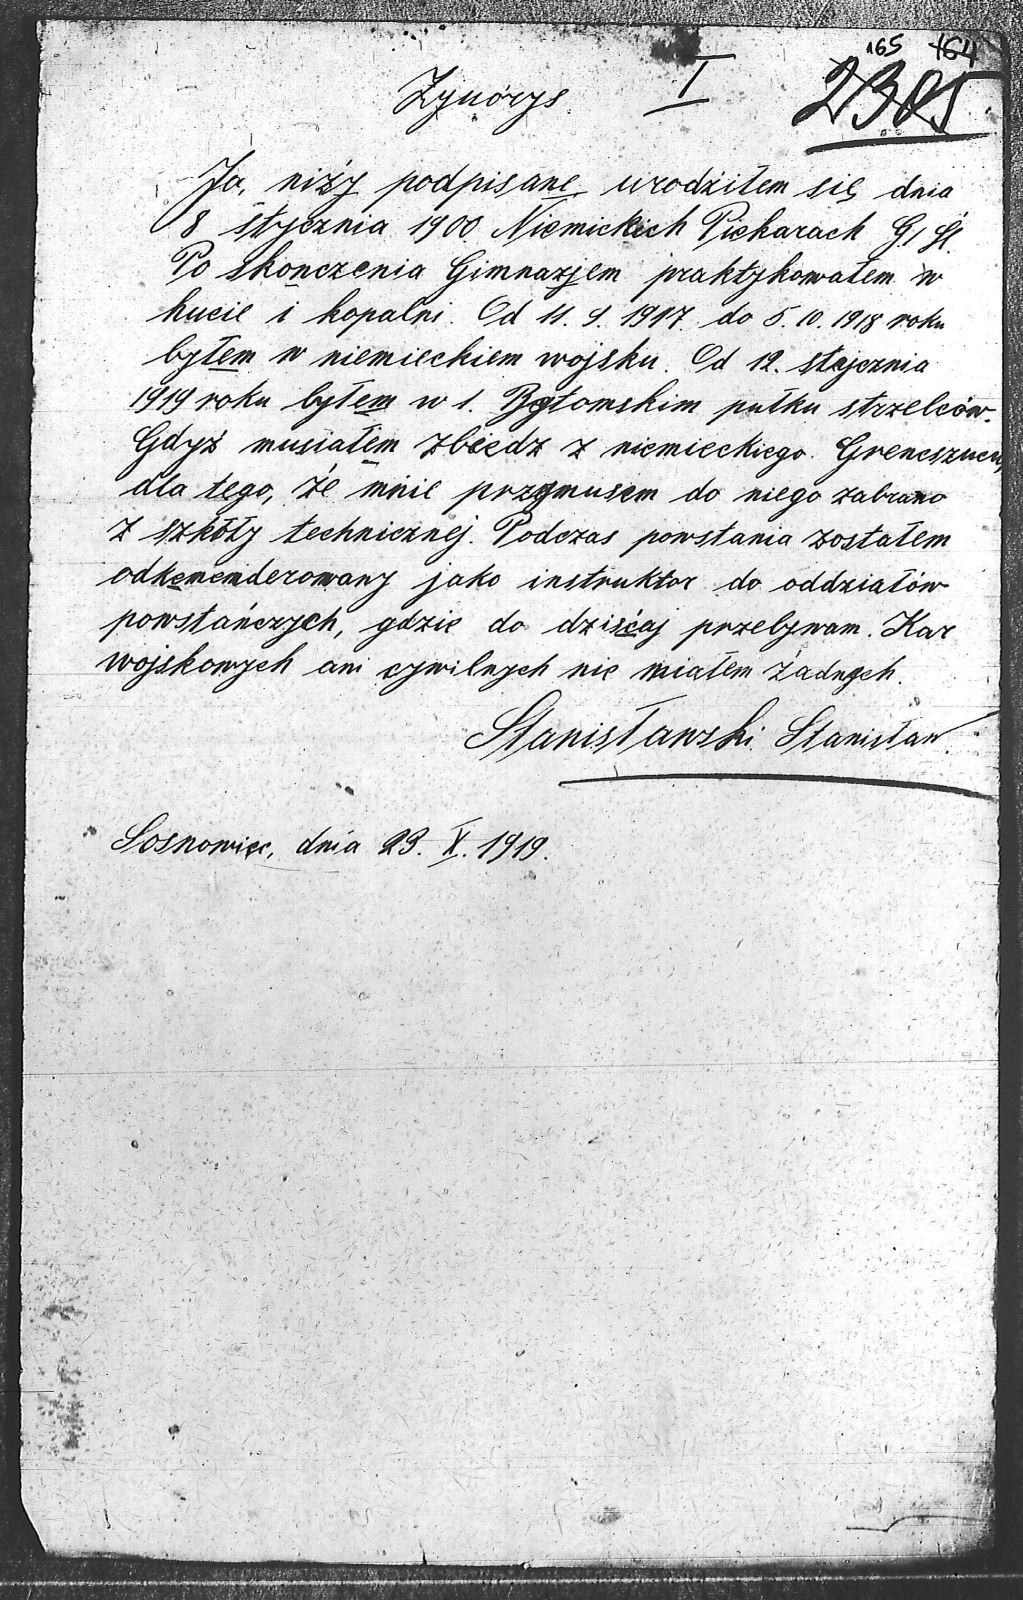 165 164
I 2305
Zynórys
Ja, niży podpisane urodziłem się dnia
8 stycznia 1900 Niemickich Piekarach G/Śl.
Po skonczenia Gimnazjem praktykowałem w
hucie i kopalni. Od 11. 9. 1917 do 5. 10. 1918 roku
byłem w niemieckiem wojsku. Od 12. stycznia
1919 roku byłem w 1. Bytomskim pułku strzelców.
Gdyż musiałem zbiedz z niemieckiego
dla tego, że mnie przymusem do niego zabrano
z szkóły technicznej. Podczas powstania zostałem
odkemenderowany jako instruktor do oddziałów
powstańczych, gdzie do dziśćaj przebywam. Kar
wojskowych ani cywilnych nie miałem żadnych.
Stanisławski Stanisław
Sosnowiec, dnia 23. X. 1919.